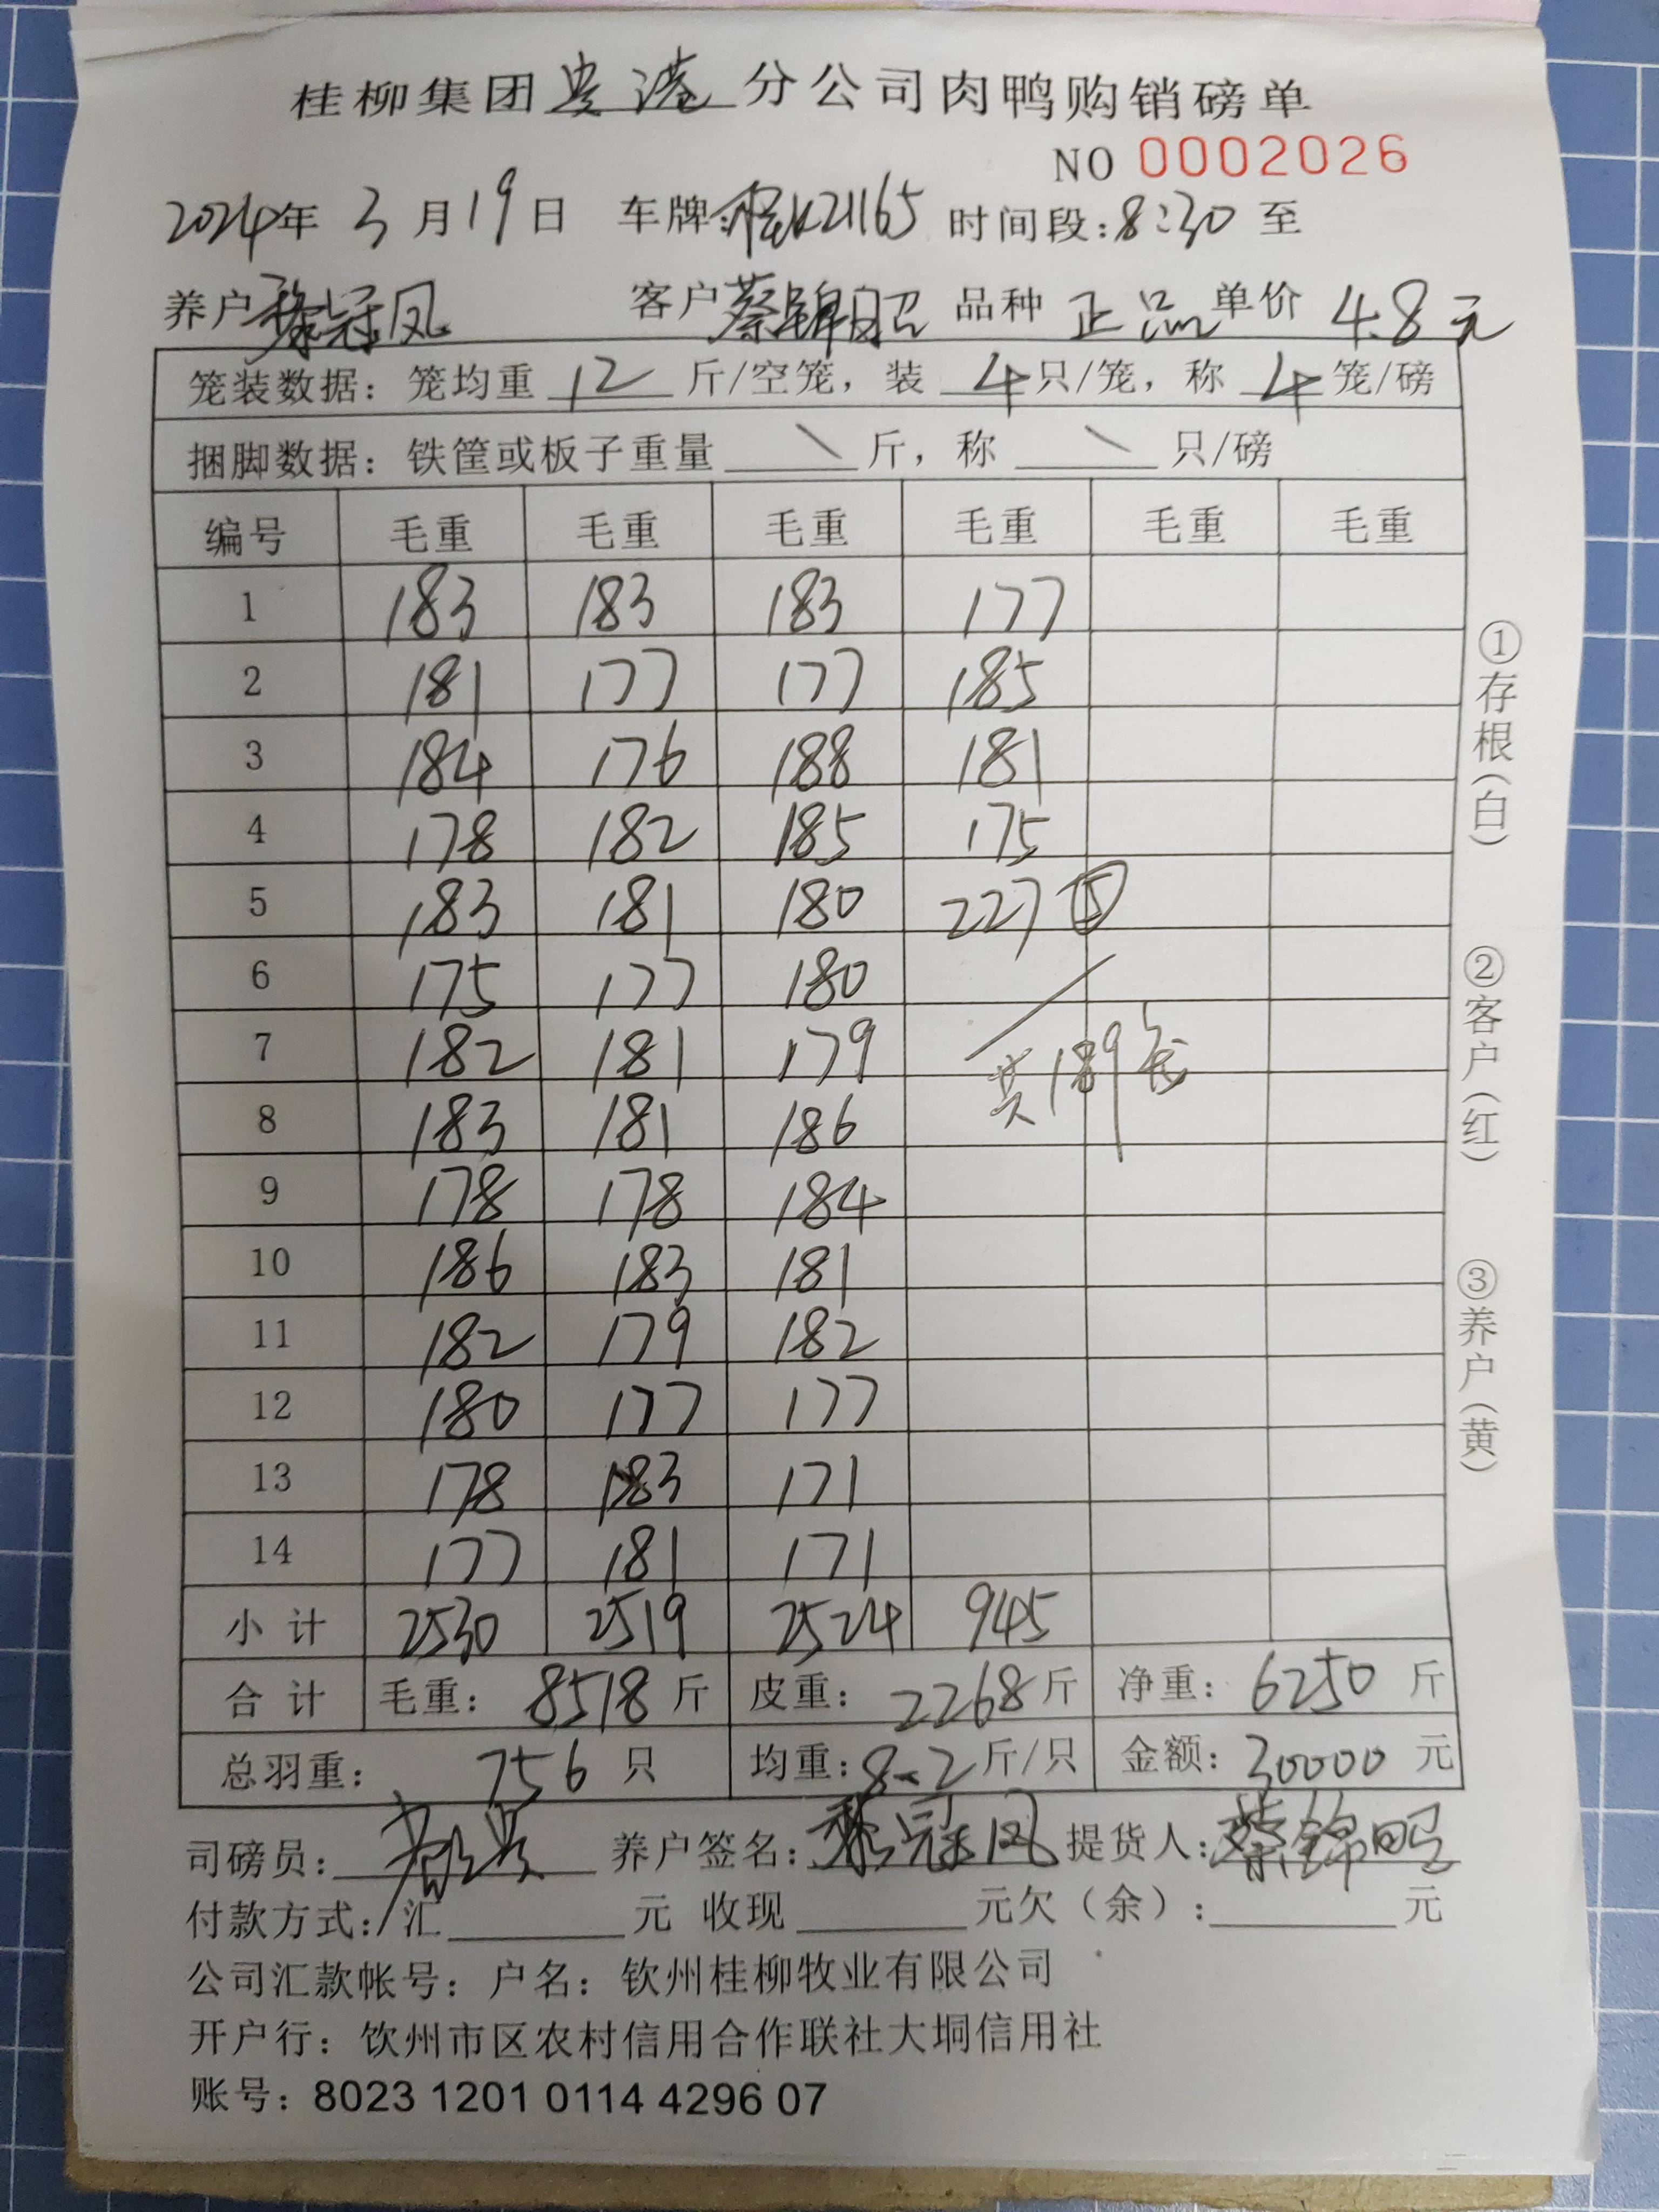 桂柳集团贵港分公司肉鸭购销磅单
NO 0002026
2024年 3月19日 车牌:桂K21165 时间段:8:30 至
养户 冠凤 客户 蔡锦昭 品种 正品 单价 4.8元
笼装数据:笼均重 12 斤/空笼,装 4 只/笼,称 4 笼/磅
捆脚数据:铁筐或板子重量 \ 斤,称 \ 只/磅
编号 毛重 毛重 毛重 毛重 毛重 毛重
1 183 183 183 177
2 181 177 177 185
3 184 176 188 181
4 178 182 185 175
5 183 181 180 227 ⑤
6 175 177 180
7 182 181 179 共189笼
8 183 181 186
9 178 178 184
10 186 183 181
11 182 179 182
12 180 177 177
13 178 183 171
14 177 181 171
小计 2530 2519 2524 945
合计 毛重:8518斤 皮重:2268斤 净重:6250斤
总羽重:756只 均重:8.2斤/只 金额:30000元
司磅员: 养户签名: 冠凤 提货人:蔡锦昭
付款方式:汇 元 收现 元欠(余): 元
公司汇款帐号:户名:钦州桂柳牧业有限公司
开户行:饮州市区农村信用合作联社大垌信用社
账号:8023 1201 0114 4296 07
①存根(白) ②客户(红) ③养户(黄)